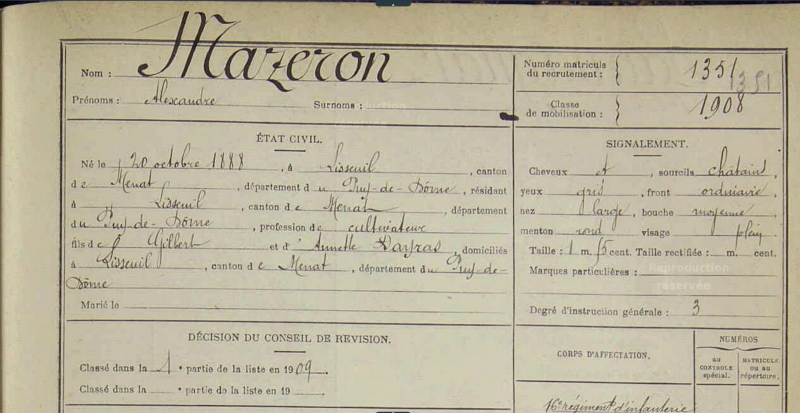 Nom : Mazeron
Prénoms : Alexandre Surnoms :
Numéro matricule du recrutement : 1351 1351
Classe de mobilisation : 1908
ÉTAT CIVIL.
Né le 20 octobre 1888, à Lisseuil, canton
de Menat, département du Puy-de-Dôme, résidant
à Lisseuil, canton de Menat, département
du Puy-de-Dôme, profession de cultivateur
fils de Gilbert et d'Annette, domiciliés
à Lisseuil, canton de Menat, département du Puy-de-
Dôme
Marié le
SIGNALEMENT.
Cheveux et sourcils châtains,
yeux gris, front ordinaire,
nez large, bouche moyenne
menton rond visage plein.
Taille : 1 m. cent. Taille rectifiée : m. cent.
Marques particulières :
Reproduction
réservée
Degré d'instruction générale : 3
DÉCISION DU CONSEIL DE REVISION.
Classé dans la 1e partie de la liste en 1909.
Classé dans la e partie de la liste en 19
CORPS D'AFFECTATION.
NUMÉROS
AU CONTROLE spécial.
MATRICULE OU AU répertoire.
16e régiment d'infanterie